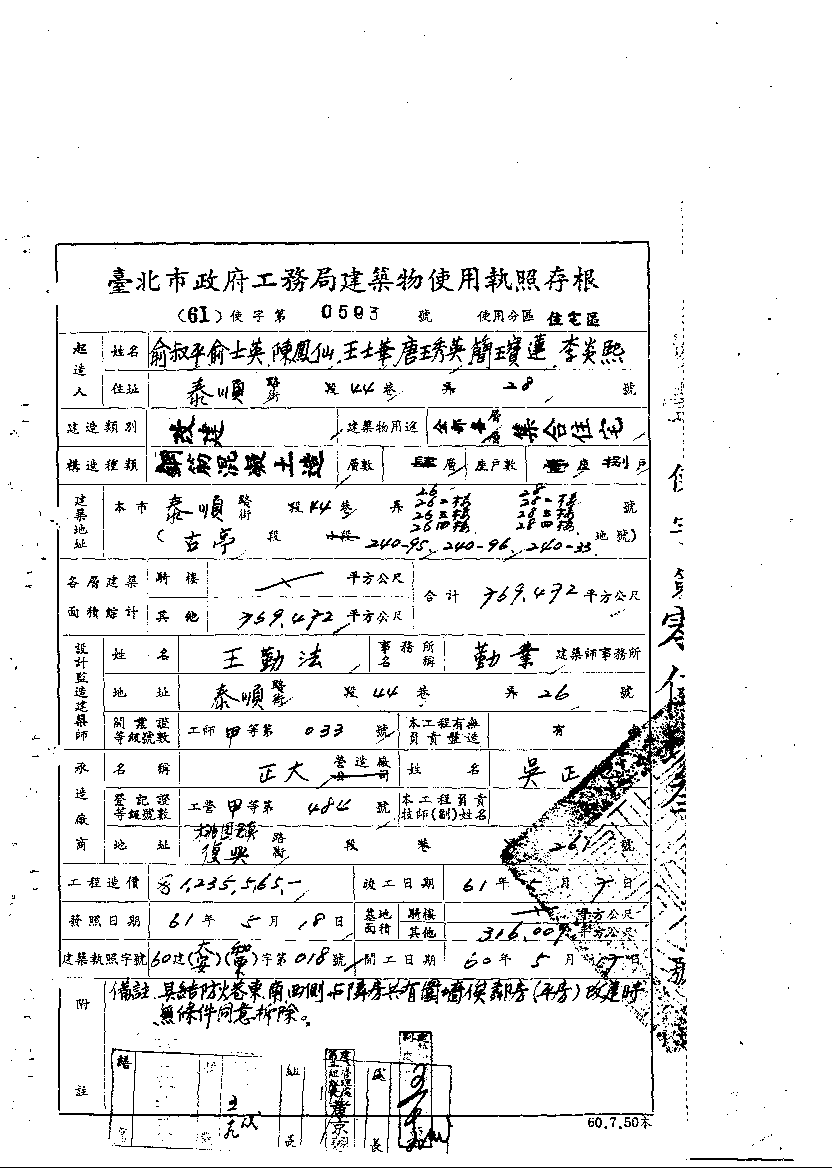 臺北市政府工務局建築物使用執照存根
(61)使字第 0593 號 使用分區 住宅區
起造人 姓名 俞叔平 俞士英 陳鳳仙 王士華 唐玉秀英 簡玉寶蓮 李炎熙
住址 泰順 路街 段44巷 弄28 號
建造類別 改建 建築物用途 集合住宅
構造種類 鋼筋混凝土造 層數 肆層 座戶數 壹座捌戶
26 28
26二樓 28二樓
建築地址 本市 泰順 路街 段44巷 弄 26三樓 28三樓 號
26四樓 28四樓
(古亭 段 小段 240-95, 240-96, 240-33 地號)
各層建築面積綜計 騎樓 平方公尺 合計 769.472 平方公尺
其他 769.472 平方公尺
設計監造建築師 姓名 王勤法 事務所名稱 勤業 建築師事務所
地址 泰順 路街 段44巷 弄26 號
開業證等級號數 工師甲等第033號 本工程有無負責監造 有
承造廠商 名稱 正大 營造廠公司 姓名 吳正
登記證等級號數 工營甲等第484號 本工程負責技師(副)姓名
地址 桃園 復興 路街 段 巷 261 號
工程造價 1,235,565.- 竣工日期 61年5月7日
發照日期 61年5月18日 基地面積 騎樓 平方公尺
其他 316.009 平方公尺
建築執照字號 60建(大安)( )字第018號 開工日期 60年5月 日
附註 備註 具結防火巷東南西側占隣房共有圍牆俟鄰房(平房)改建時
無條件同意拆除。
組長
處長
60.7.50本